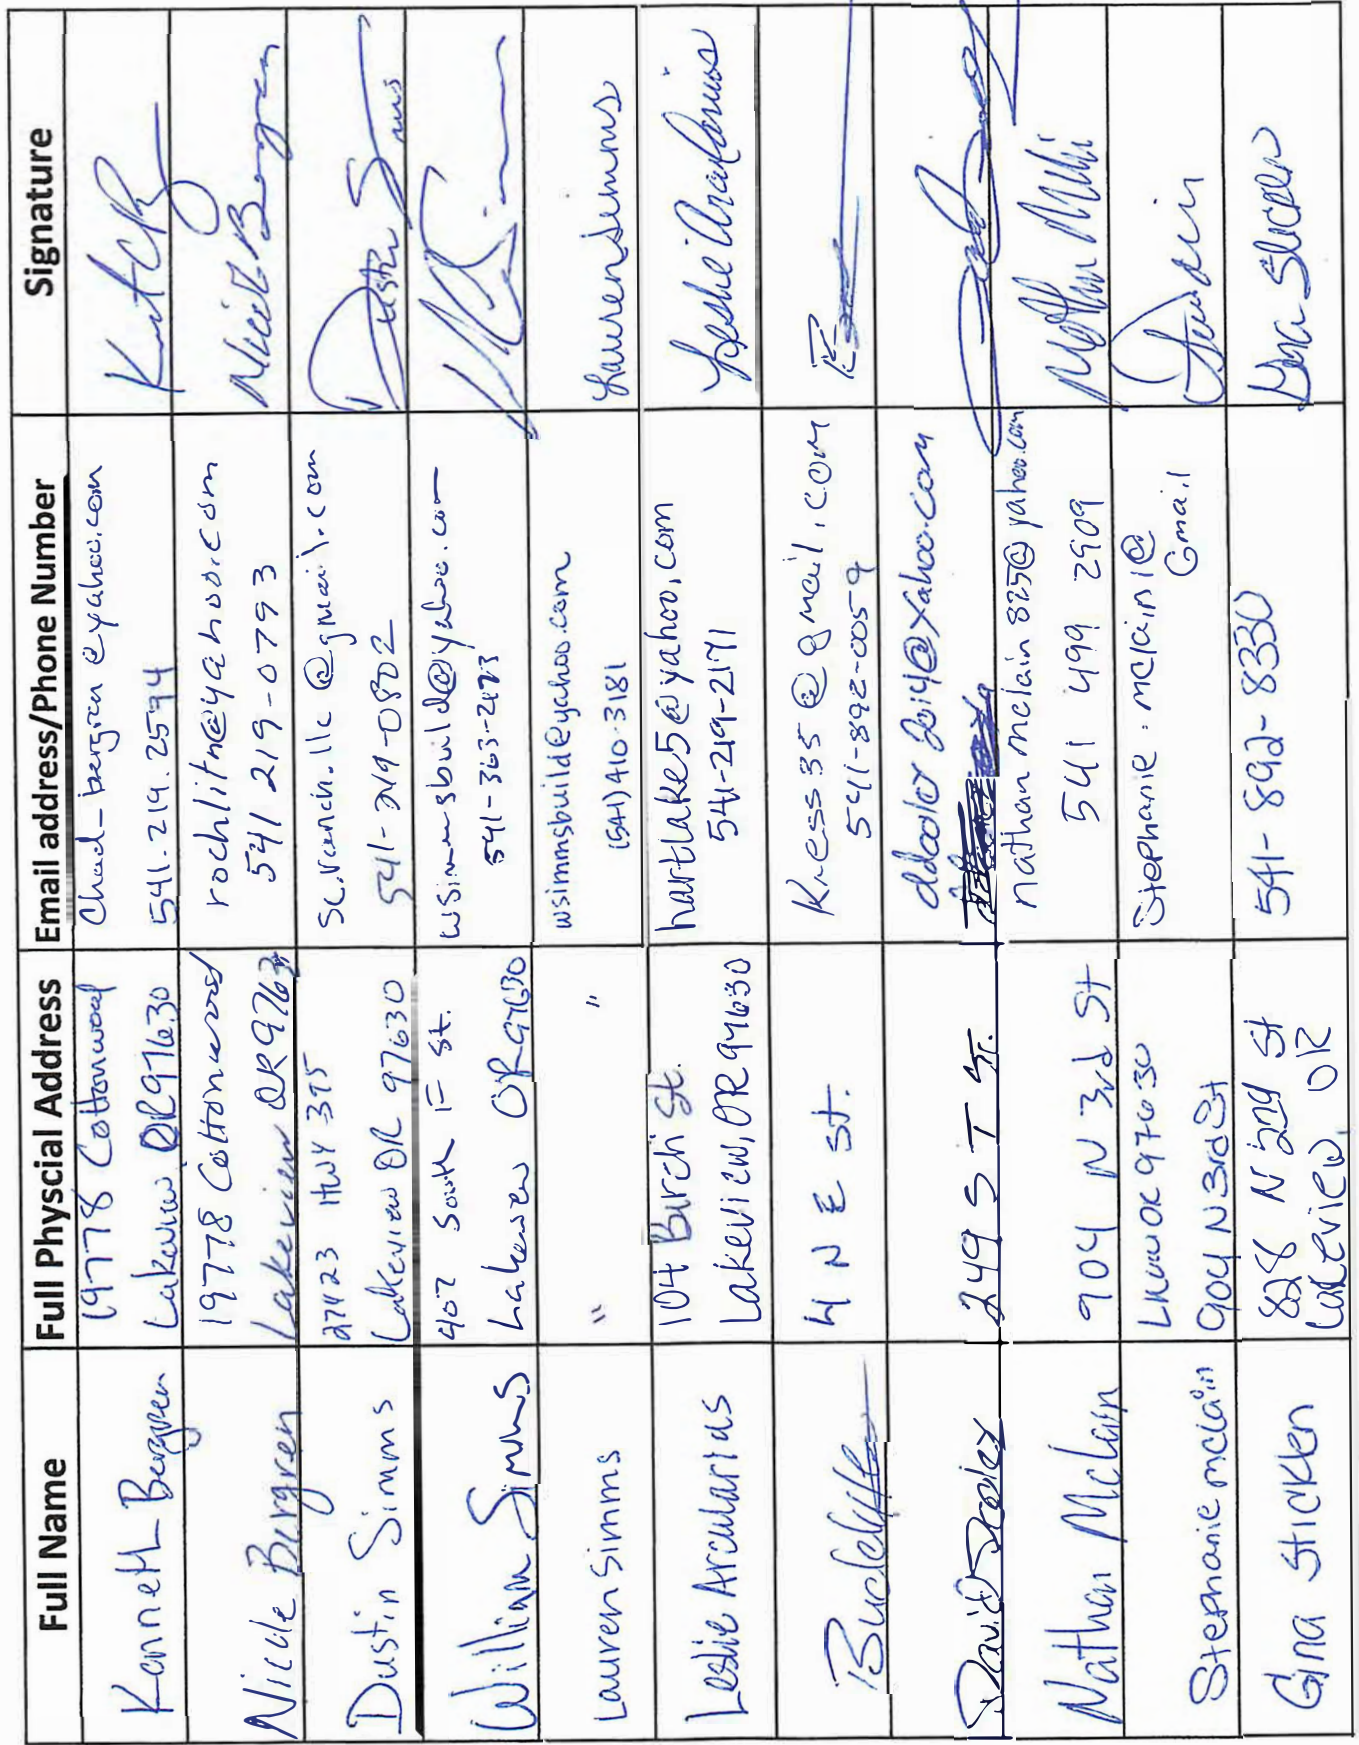 Full Name
Full Physcial Address
Email address/Phone Number
Signature
Kenneth Bergren
19778 Cottonwood
Lakeview OR 97630
chad_bergren@yahoo.com
541.219.2594
Nicole Bergren
19778 Cottonwood
Lakeview OR 9763
rochlitm@yahoo.com
541 219-0793
Nicole Bergren
Dustin Simms
27423 HWY 395
Lakeview OR 97630
@gmail.com
541-219-0802
Dustin Simms
William Simms
407 South F St.
Lakeview OR 97630
wsimmsbuild@yahoo.com
541-363-2473
Lauren Simms
" "
wsimmsbuild@yahoo.com
(541) 410-3181
Lauren Simms
Leslie Arcularius
104 Burch St.
Lakeview, OR 97630
hartlake5@yahoo.com
541-219-2171
Leslie Arcularius
4 N E St.
Kress35@gmail.com
541-892-0059
David Dooley
249 S I St.
2014@yahoo.com
Nathan McLain
904 N 3rd St
LKVW OR 97630
nathanmclain825@yahoo.com
541 499 2909
Stephanie mclain
904 N 3rd St
Stephanie.mclain1@
Gmail
Gina Sticklen
828 N 2nd St
Lakeview, OR
541-892-8330